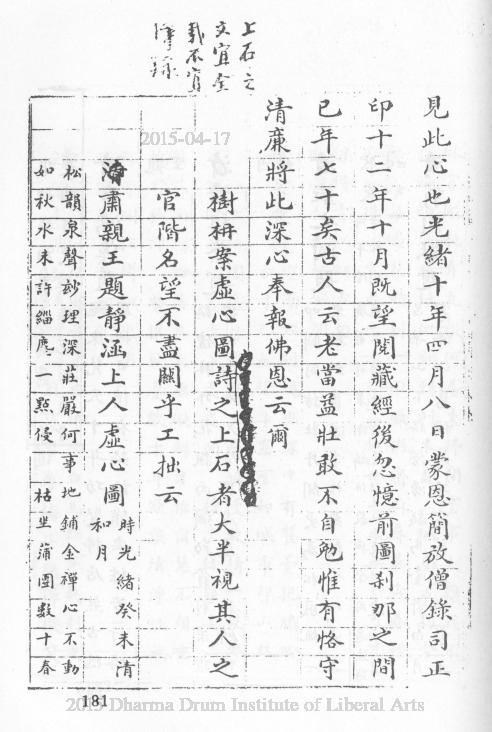 上石之
文宜全
載不宜
見此心也光緒十年四月八日蒙恩簡放僧錄司正
印十二年十月既望閱藏經後忽憶前圖剎那之間
已年七十矣古人云老當益壯敢不自勉惟有恪守
清廉將此深心奉報佛恩云爾
樹枏案虛心圖詩之上石者大半視其人之
官階名望不盡關乎工拙云
肅親王題靜涵上人虛心圖 時光緒癸未清
和月
松韻泉聲妙理深莊嚴何事地鋪金禪心不動
如秋水未許緇塵一點侵 枯坐蒲團數十春
181
2015-04-17
2015 Dharma Drum Institute of Liberal Arts